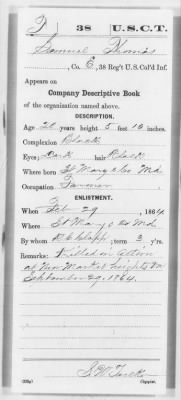 T 38 U.S.C.T.
Samuel Thomas
, Co. E, 38 Reg't U.S. Col'd Inf.
Appears on
Company Descriptive Book
of the organization named above.
DESCRIPTION.
Age 28 years; height 5 feet 10 inches.
Complexion Black
Eyes; Dark hair Black
Where born St Marys Co Md.
Occupation Farmer
ENLISTMENT.
When Feb 29, 1864
Where St Marys Co Md
By whom ; term 3 y'rs.
Remarks: Killed in action
at New Market heights Va
September 29, 1864.
Copyist.